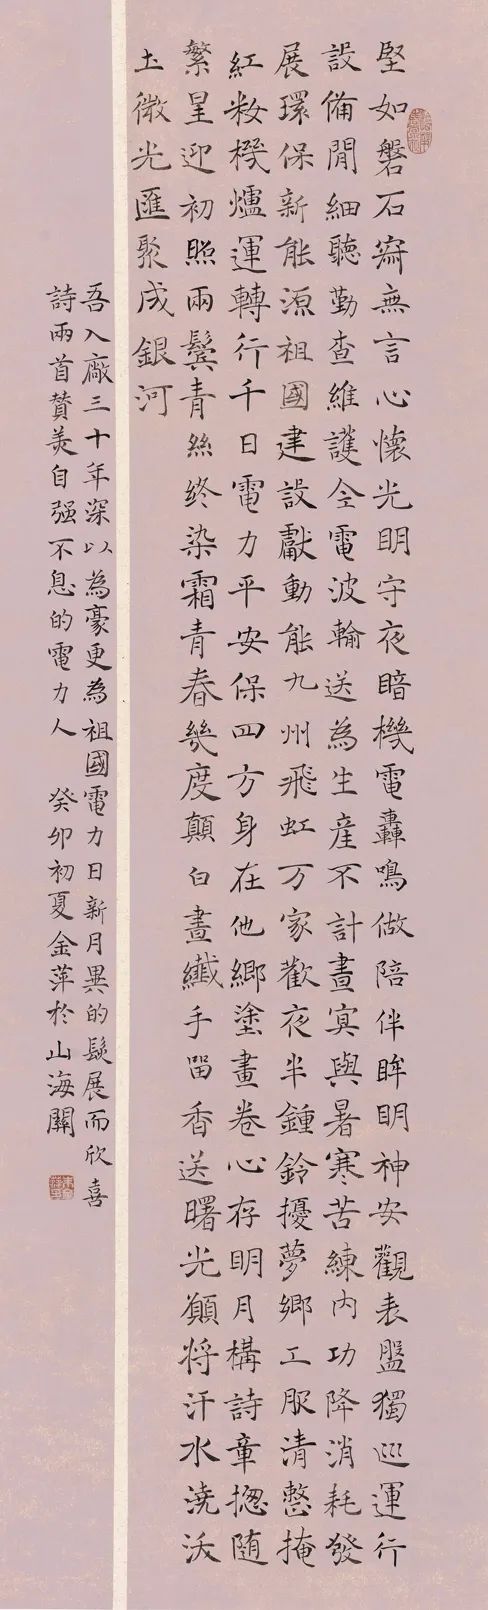 堅如磐石奝無言心懷光明守夜暗機電轟鳴做陪伴眸明神安觀表盤獨巡運行
設備間細聽勤查維護令電波輸送為生産不計晝寅與暑寒苦練内功降消耗發
展環保新能源祖國建設獻動能九州飛虹万家歡夜半鍾鈴擾夢鄉工服清整掩
紅妝機爐運轉行千日電力平安保四方身在他鄉塗畫卷心存明月構詩章揔随
繁星迎初照兩鬓青絲終染霜青春幾度顛白晝纖手留香送曙光願将汗水澆沃
土微光匯聚成銀河
吾入廠三十年深以為豪更為祖國電力日新月異的發展而欣喜
詩兩首贊美自强不息的電力人 癸卯初夏金萍於山海關